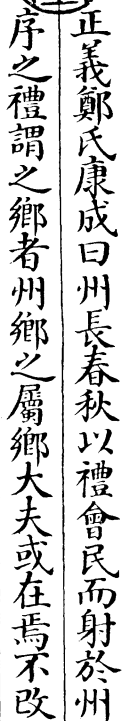 正義鄭氏康成曰州長春秋以禮會民而射於州
序之禮謂之鄉者州鄉之屬鄉大夫或在焉不改